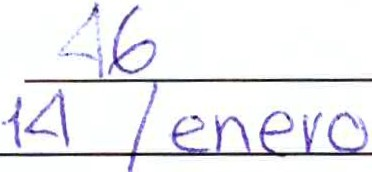 46
14 / enero